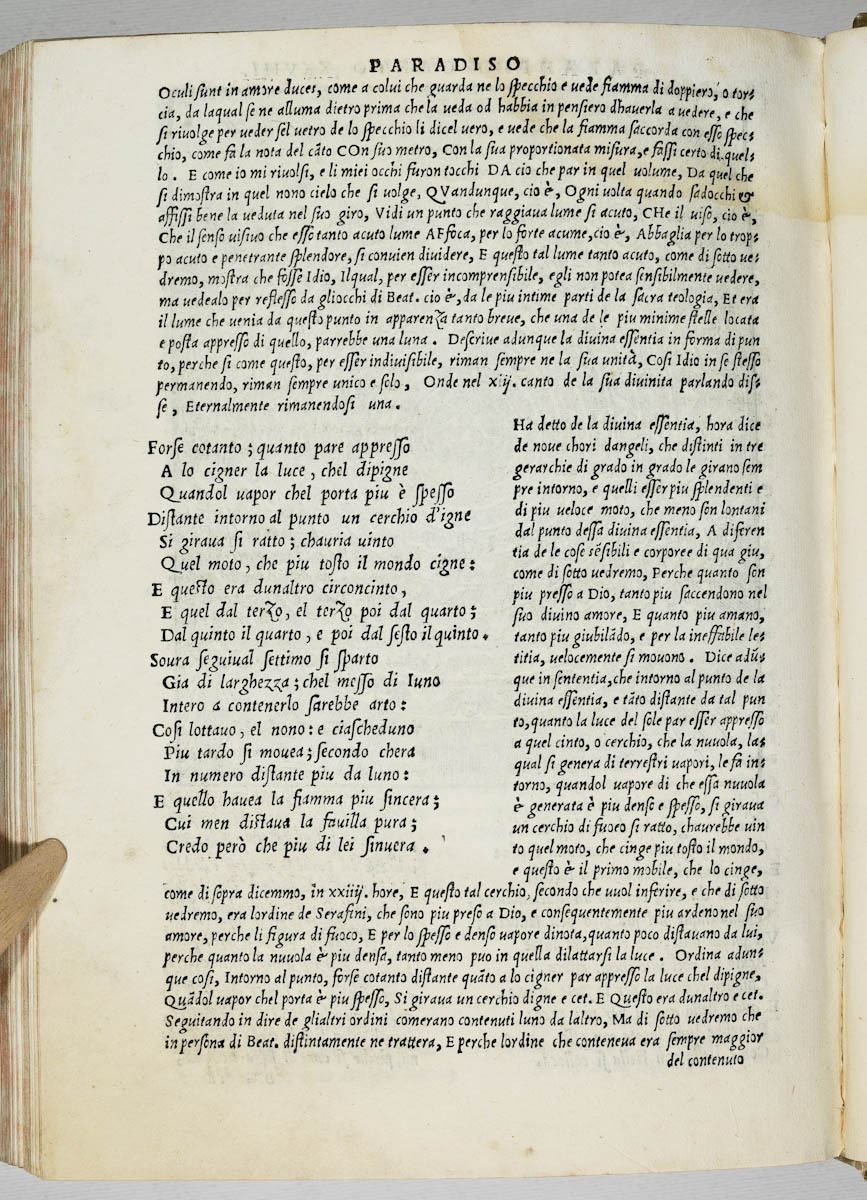 PARADISO
Oculi sunt in amore duces, come a colui che guarda ne lo specchio e uede fiamma di doppiero, o tor⸗
cia, da laqual se ne alluma dietro prima che la ueda od habbia in pensiero dhauerla a uedere, e che
si riuolge per ueder sel uetro de lo specchio li dicel uero, e uede che la fiamma saccorda con esso spec⸗
chio, come fa la nota del cãto COn suo metro, Con la sua proportionata misura, e fassi certo di quel⸗
lo. E come io mi riuolsi, e li miei occhi furon tocchi DA cio che par in quel uolume, Da quel che
si dimostra in quel nono cielo che si uolge, QVandunque, cio è, Ogni uolta quando sadocchi &
affissi bene la ueduta nel suo giro, Vidi un punto che raggiaua lume si acuto, CHe il uiso, cio è,
Che il senso uisiuo che esso tanto acuto lume AFfoca, per lo forte acume, cio è, Abbaglia per lo trop⸗
po acuto e penetrante splendore, si conuien diuidere, E questo tal lume tanto acuto, come di sotto ue⸗
dremo, mostra che fosse Idio, Ilqual, per esser incomprensibile, egli non potea sensibilmente uedere,
ma uedealo per reflesso da gliocchi di Beat. cio è, da le piu intime parti de la sacra teologia, Et era
il lume che uenia da questo punto in apparenza tanto breue, che una de le piu minime stelle locata
e posta appresso di quello, parrebbe una luna. Descriue adunque la diuina essentia in forma di pun
to, perche si come questo, per esser indiuisibile, riman sempre ne la sua unità, Cosi Idio in se stesso
permanendo, riman sempre unico e solo, Onde nel xiij. canto de la sua diuinita parlando dis⸗
se, Eternalmente rimanendosi una.
Forse cotanto; quanto pare appresso
A lo cigner la luce, chel dipigne
Quandol uapor chel porta piu è spesso
Distante intorno al punto un cerchio d'igne
Si giraua si ratto; chauria uinto
Quel moto, che piu tosto il mondo cigne:
E questo era dunaltro circoncinto,
E quel dal terzo, el terzo poi dal quarto;
Dal quinto il quarto, e poi dal sesto il quinto.
Soura seguiual settimo si sparto
Gia di larghezza; chel messo di Iuno
Intero a contenerlo sarebbe arto:
Cosi lottauo, el nono: e ciascheduno
Piu tardo si mouea; secondo chera
In numero distante piu da luno:
E quello hauea la fiamma piu sincera;
Cui men distaua la fauilla pura;
Credo però che piu di lei sinuera.
Ha detto de la diuina essentia, hora dice
de noue chori dangeli, che distinti in tre
gerarchie di grado in grado le girano sem
pre intorno, e quelli esser piu splendenti e
di piu ueloce moto, che meno sen lontani
dal punto dessa diuina essentia, A diferen
tia de le cose sẽsibili e corporee di qua giu,
come di sotto uedremo, Perche quanto son
piu presso a Dio, tanto piu saccendono nel
suo diuino amore, E quanto piu amano,
tanto piu giubilãdo, e per la ineffabile le⸗
titia, uelocemente si mouono. Dice adũ⸗
que in sententia, che intorno al punto de la
diuina essentia, e tãto distante da tal pun
to, quanto la luce del sole par esser appresso
a quel cinto, o cerchio, che la nuuola, la⸗
qual si genera di terrestri uapori, le fa in⸗
torno, quandol uapore di che essa nuuola
è generata è piu denso e spesso, si giraua
un cerchio di fuoco si ratto, chaurebbe uin
to quel moto, che cinge piu tosto il mondo,
e questo è il primo mobile, che lo cinge,
come di sopra dicemmo, in xxiiij. hore, E questo tal cerchio, secondo che uuol inferire, e che di sotto
uedremo, era lordine de Serafini, che sono piu preso a Dio, e consequentemente piu ardeno nel suo
amore, perche li figura di fuoco, E per lo spesso e denso uapore dinota, quanto poco distauano da lui,
perche quanto la nuuola è piu densa, tanto meno puo in quella dilattarsi la luce. Ordina adun⸗
que cosi, Intorno al punto, forse cotanto distante quãto a lo cigner par appresso la luce chel dipigne,
Quãdol uapor chel porta è piu spesso, Si giraua un cerchio digne e cet. E Questo era dunaltro e cet.
Seguitando in dire de glialtri ordini comerano contenuti luno da laltro, Ma di sotto uedremo che
in persona di Beat. distintamente ne trattera, E perche lordine che conteneua era sempre maggior
del contenuto